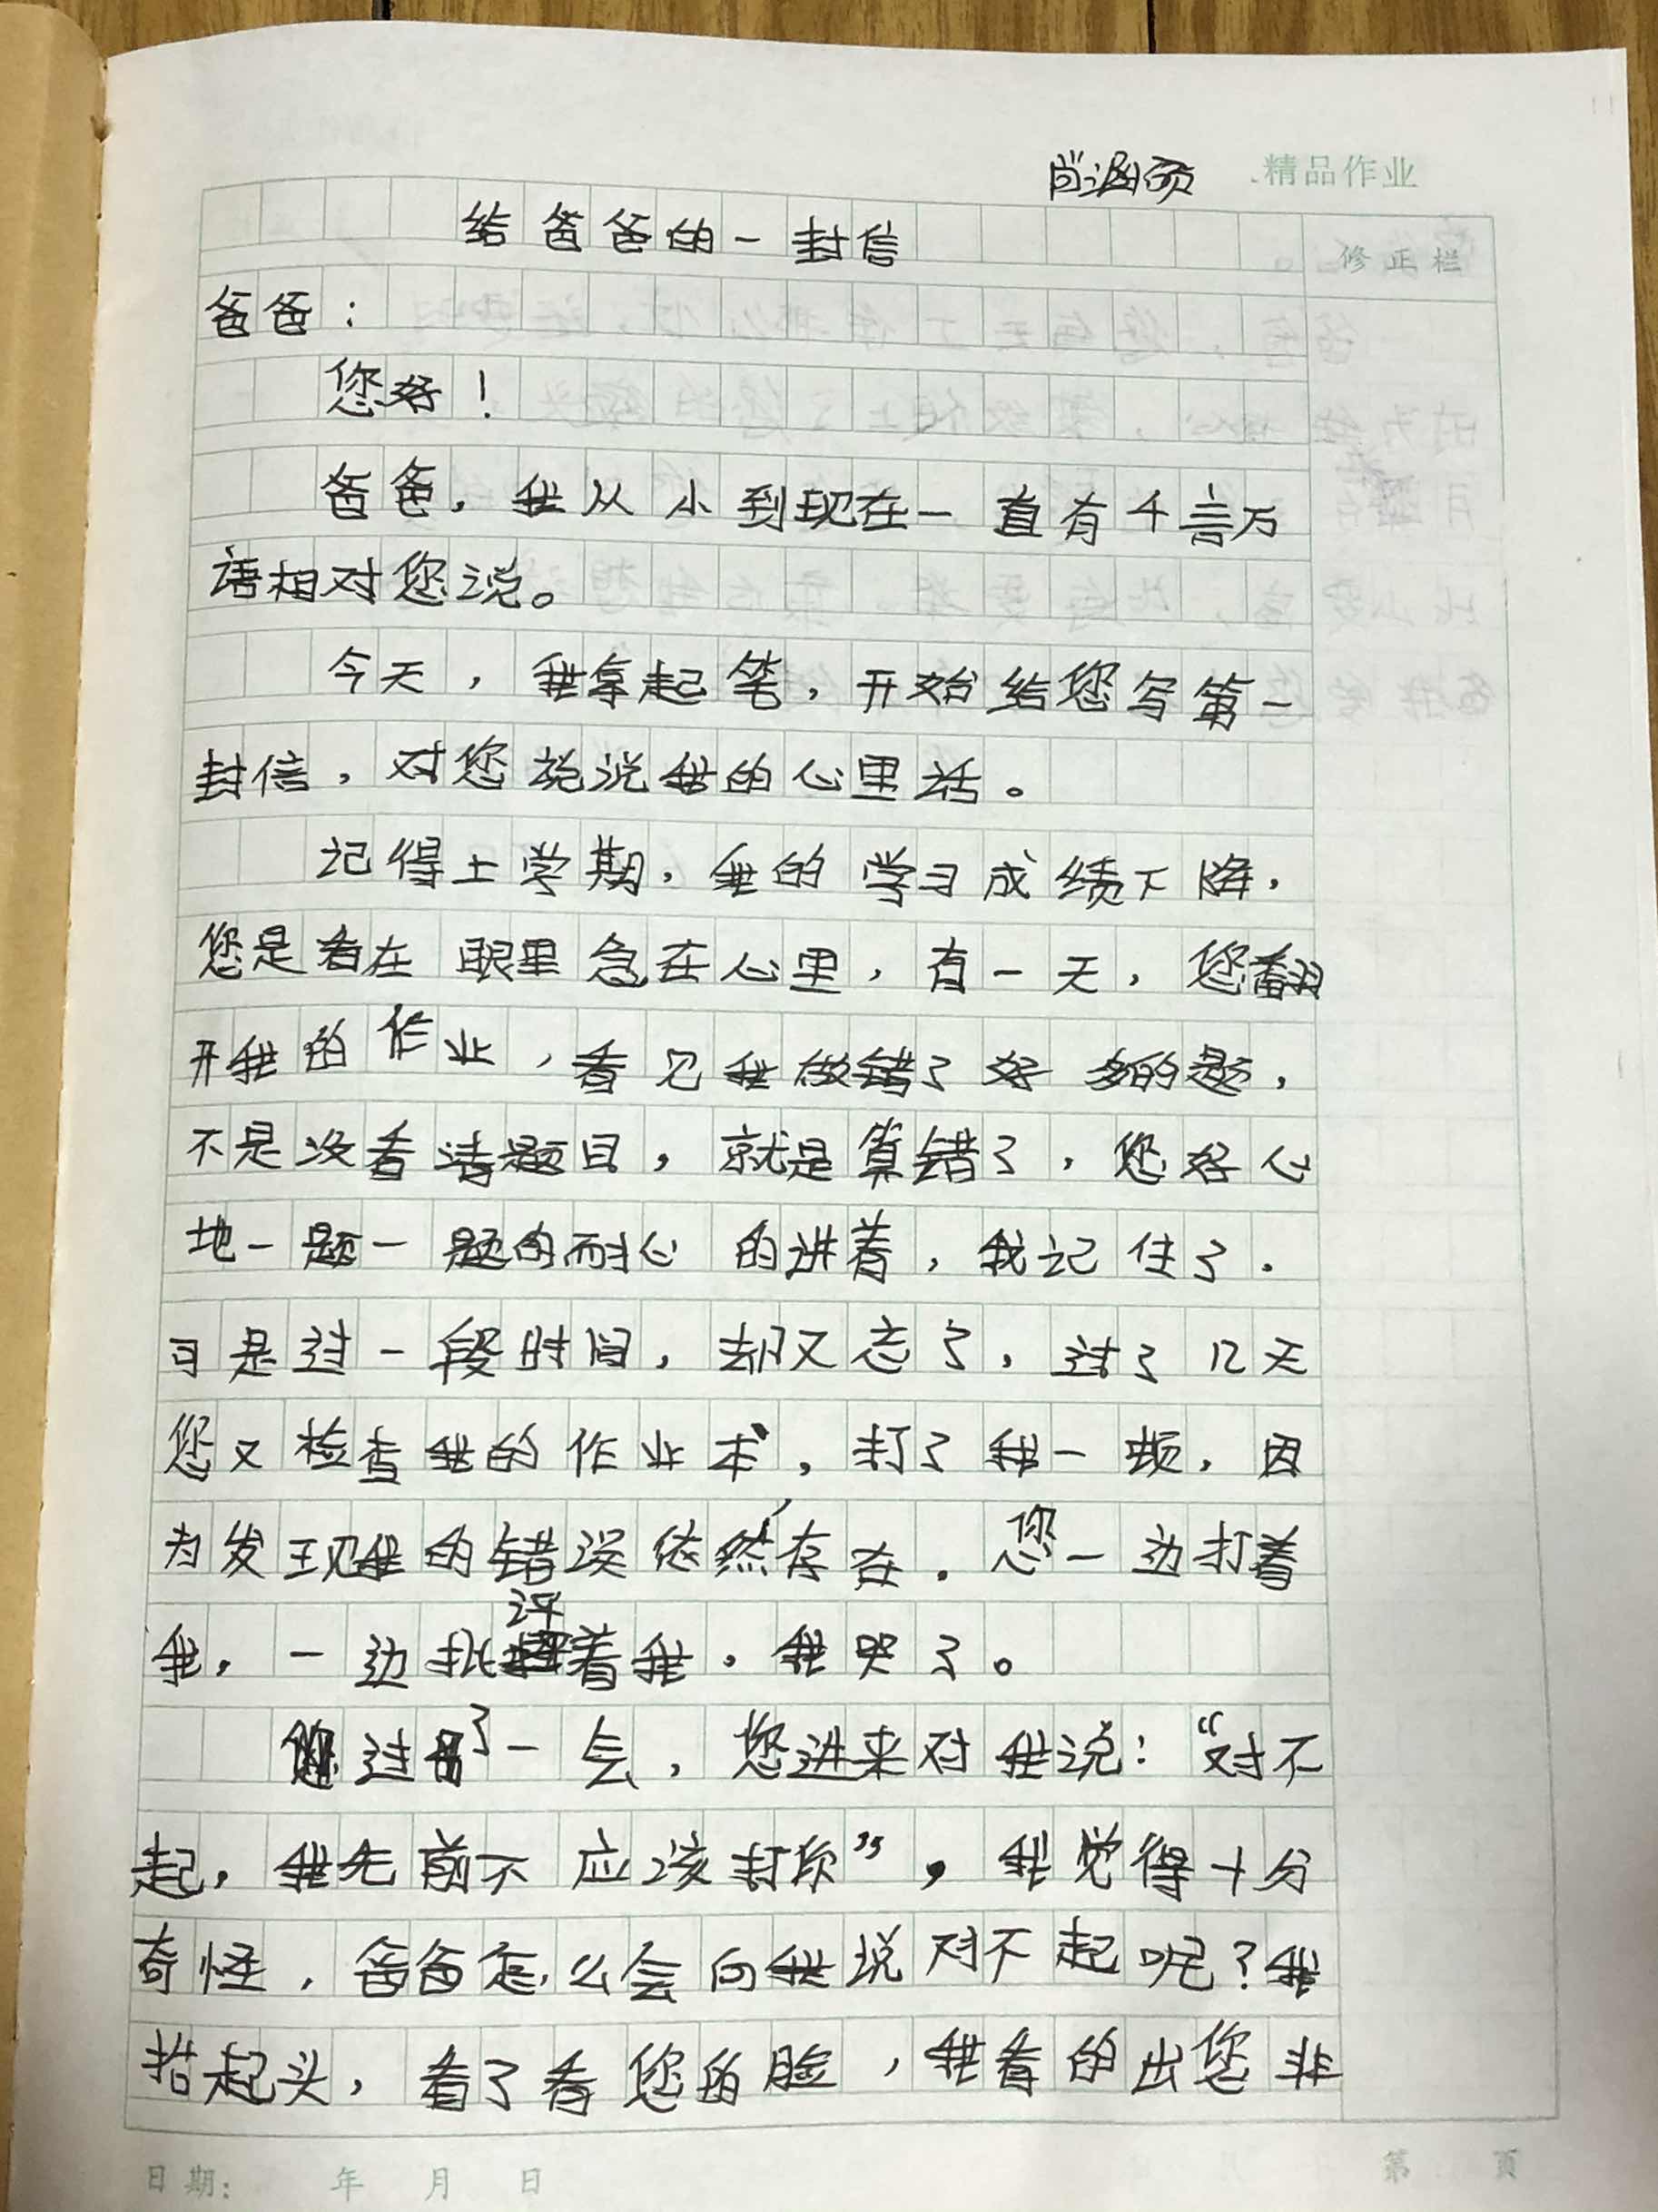 尚涵硕 精品作业
给爸爸的一封信
修正栏
爸爸：
您好！
爸爸，我从小到现在一直有千言万
语相对您说。
今天，我拿起笔，开始给您写第一
封信，对您说说我的心里话。
记得上学期，我的学习成绩下降，
您是看在眼里急在心里，有一天，您翻
开我的作业，看见我做错了好多的题，
不是没看清题目，就是算错了，您好心
地一题一题的耐心的讲着，我记住了．
可是过一段时间，却又忘了，过了几天
您又检查我的作业本，打了我一顿，因
为发现我的错误依然存在．您一边打着
我，一边批评着我，我哭了。
过了一会，您进来对我说：“对不
起，我先前不应该打你”，我觉得十分
奇怪，爸爸怎么会向我说对不起呢？我
抬起头，看了看您的脸，我看的出您非
日期： 年 月 日 第 页